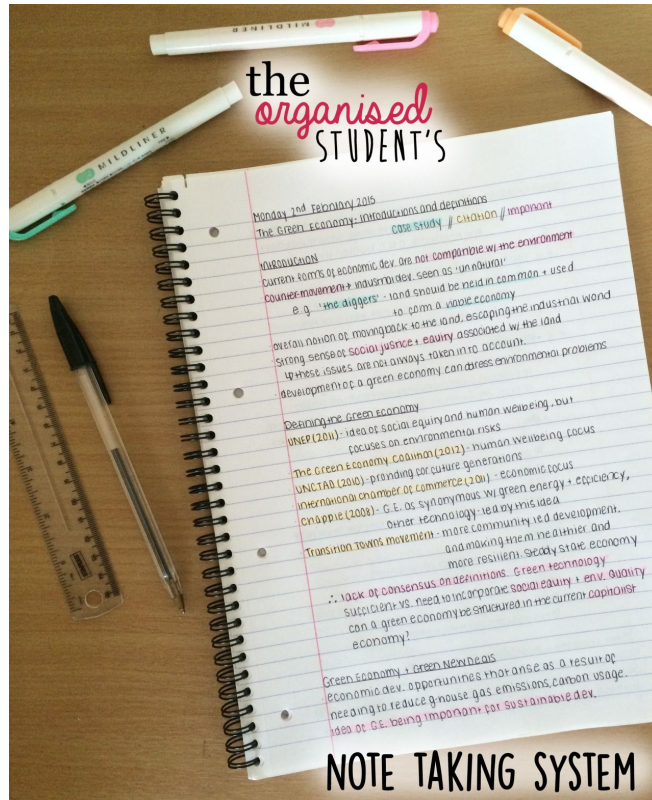 MILDLINER
the
organised
STUDENT'S
MILDLINER
Monday 2nd February 2015
The Green Economy: Introductions and definitions
case study // citation // important
INTRODUCTION
current forms of economic dev. are not compatible w/ the environment
counter-movement + industrial dev. seen as 'unnatural'
e.g. 'the diggers' - land should be held in common + used
to form a viable economy
overall notion of moving back to the land, escaping the industrial world
strong sense of social justice + equity associated w/ the land
↳ these issues are not always taken into account.
development of a green economy can adress environmental problems
Defining the Green Economy
UNEP (2011) - idea of social equity and human wellbeing, but
focuses on environmental risks
The Green Economy Coalition (2012) - human wellbeing focus
UNCTAD (2010) - providing for future generations
International chamber of commerce (2011) - economic focus
Chapple (2008) - G.E. as synonymous w/ green energy + efficiency,
other technology - led by this idea
Transition Towns movement - more community led development,
and making them healthier and
more resilient. Steady state economy
∴ lack of consensus on definitions. Green technology
sufficient vs. need to incorporate social equity + env. quality
can a green economy be structured in the current capitalist
economy?
Green Economy + Green New Deals
economic dev. opportunities that arise as a result of
needing to reduce g-house gas emissions, carbon usage.
idea of G.E. being important for sustainable dev.
NOTE TAKING SYSTEM